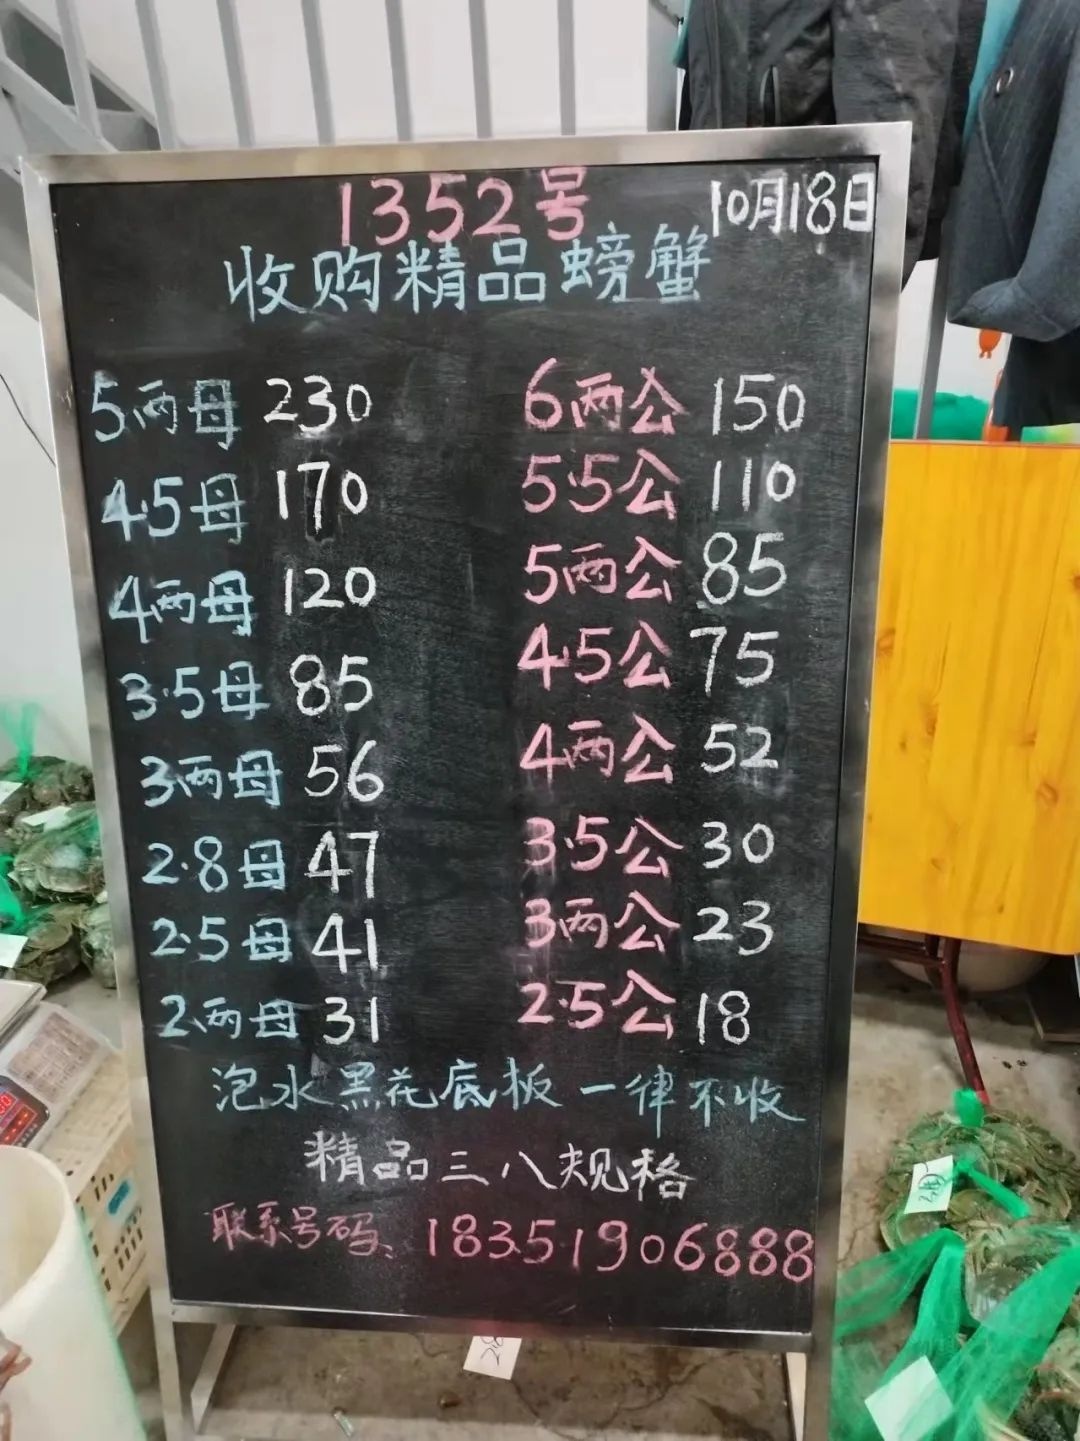 1352号 10月18日
收购精品螃蟹
5两母 230 6两公 150
4.5母 170 5.5公 110
4两母 120 5两公 85
3.5母 85 4.5公 75
3两母 56 4两公 52
2.8母 47 3.5公 30
2.5母 41 3两公 23
2两母 31 2.5公 18
泡水黑花底板一律不收
精品三八规格
联系号码、18351906888